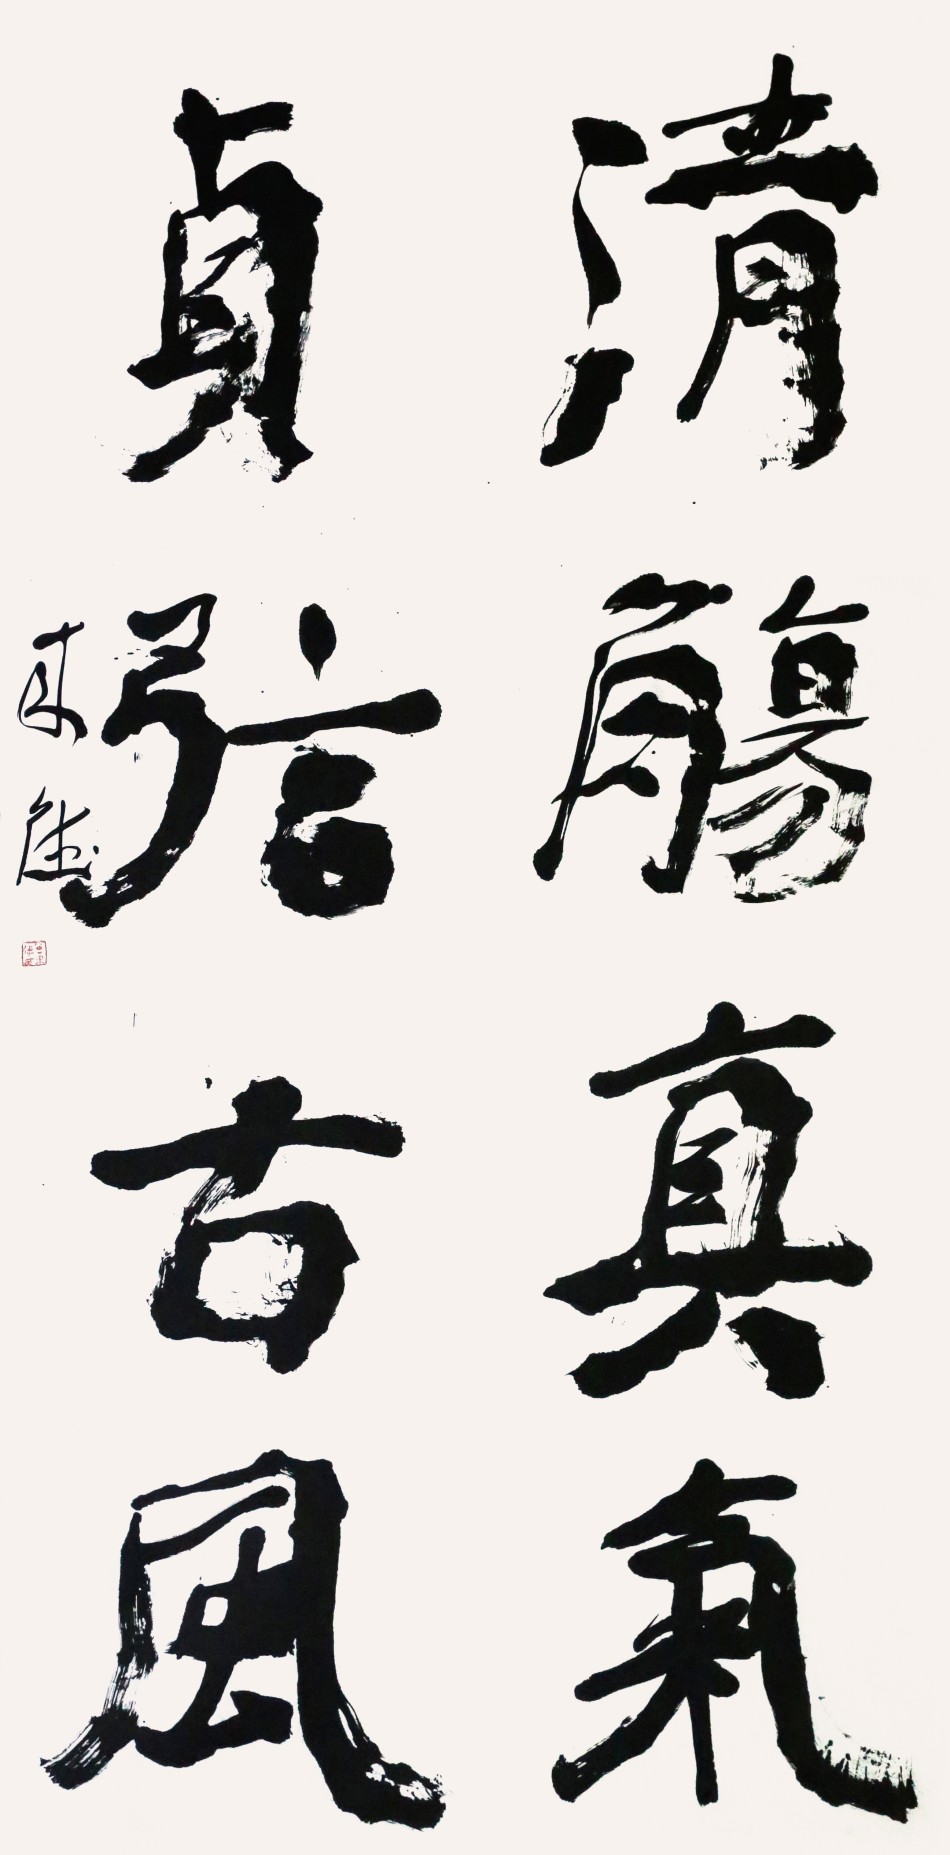 清觴真氣
貞弦古風